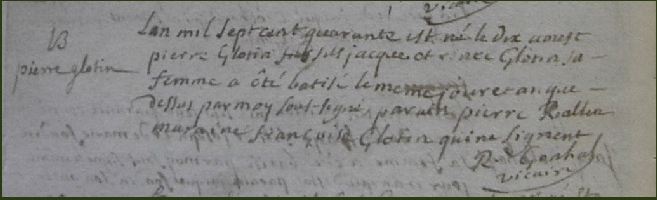 vicaire
B
pierre glotin
Lan mil sept cent quarante est né le dix aoust
pierre Glotin fils jacque et renee Glotin sa
femme a été batisé le meme jour et an que
dessus par moy sous signé parain pierre
maraine françoise Glotin qui ne signent
vicaire